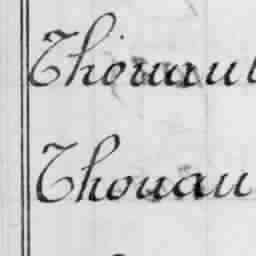 Thouau
Thouau